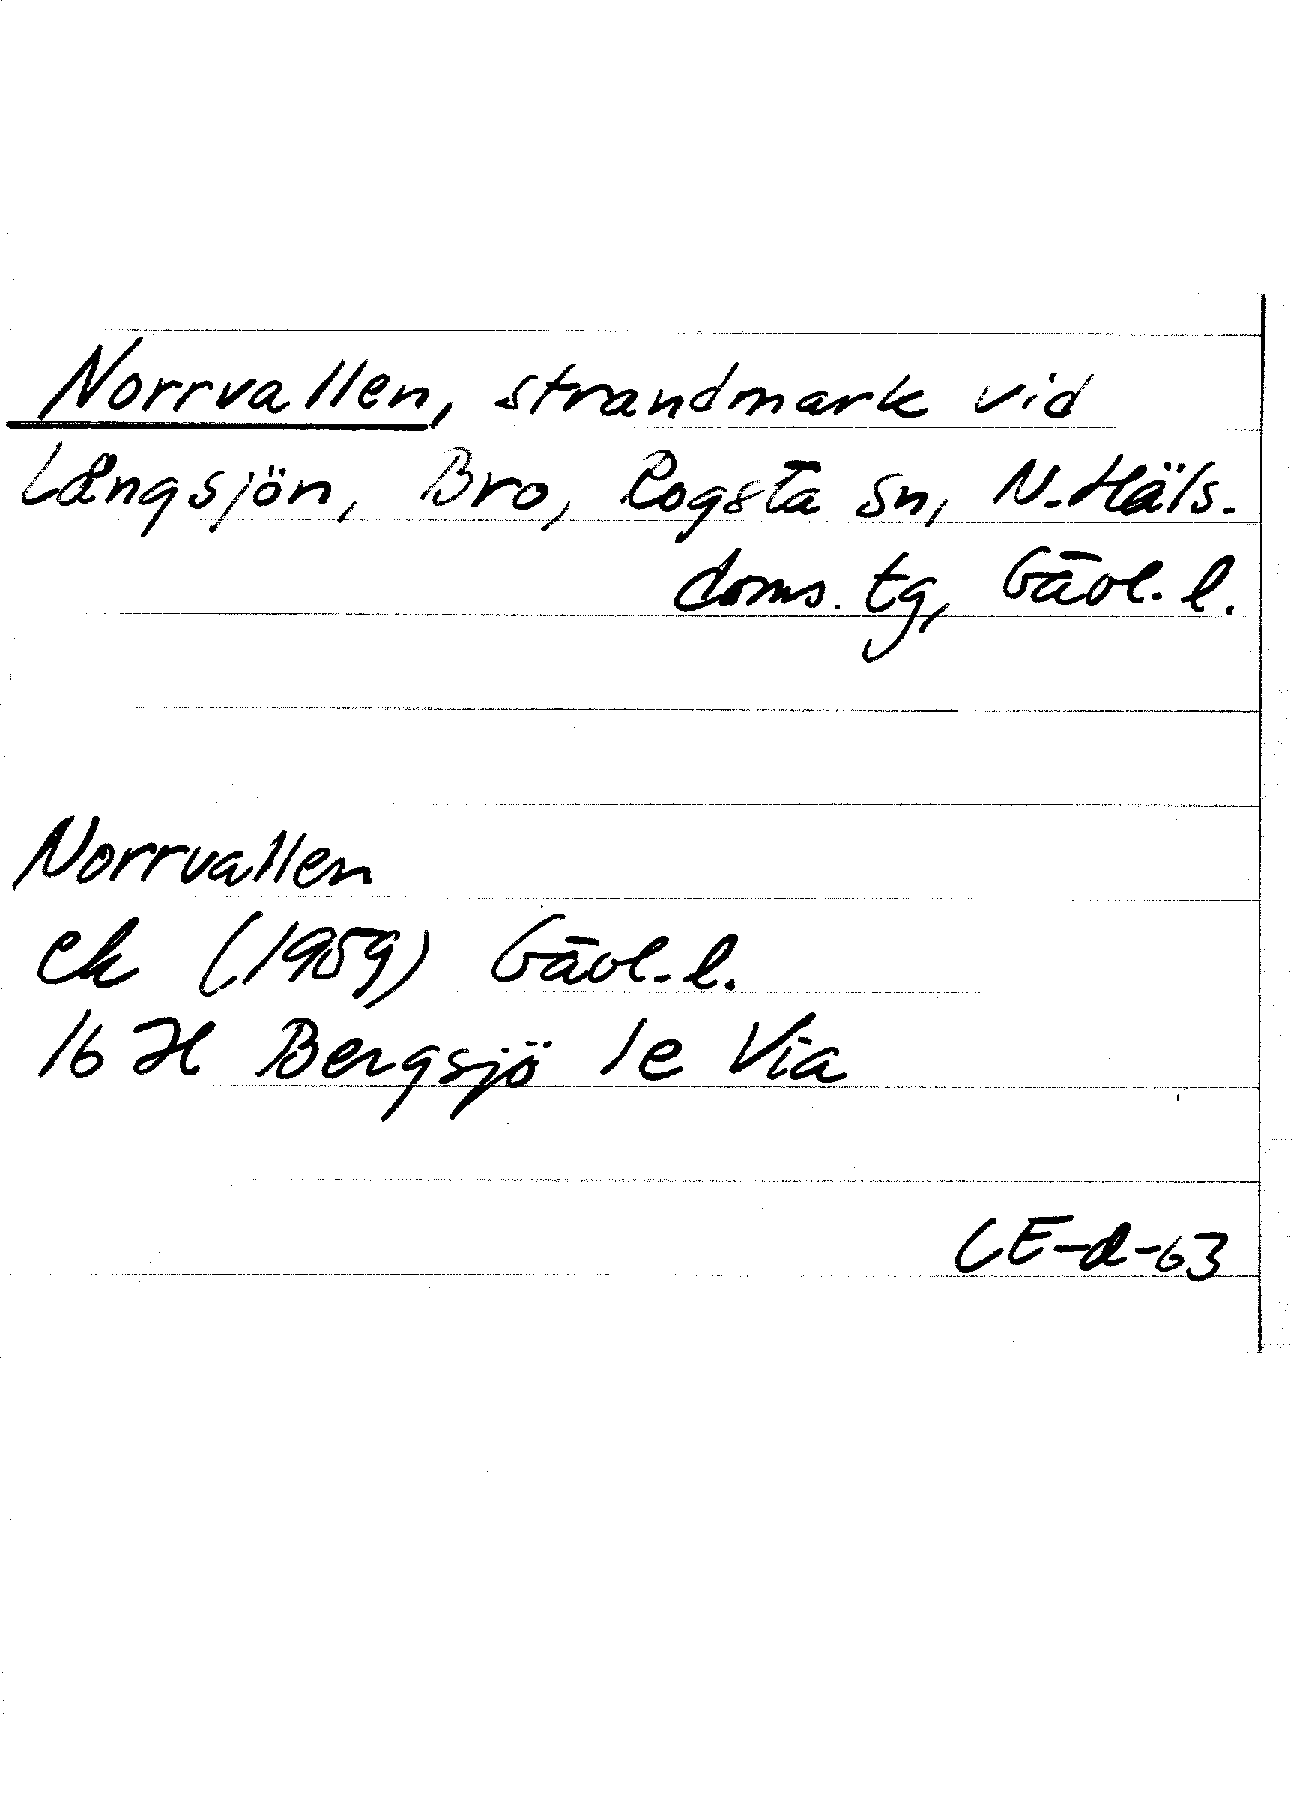 Norrvallen, strandmark vid
Långsjön, Bro, Rogsta sn, N. Häls.
doms. tg, Gävl. l.
Norrvallen
ek (1959) Gävl. l.
16 H Bergsjö 1e Via
CE-d-63